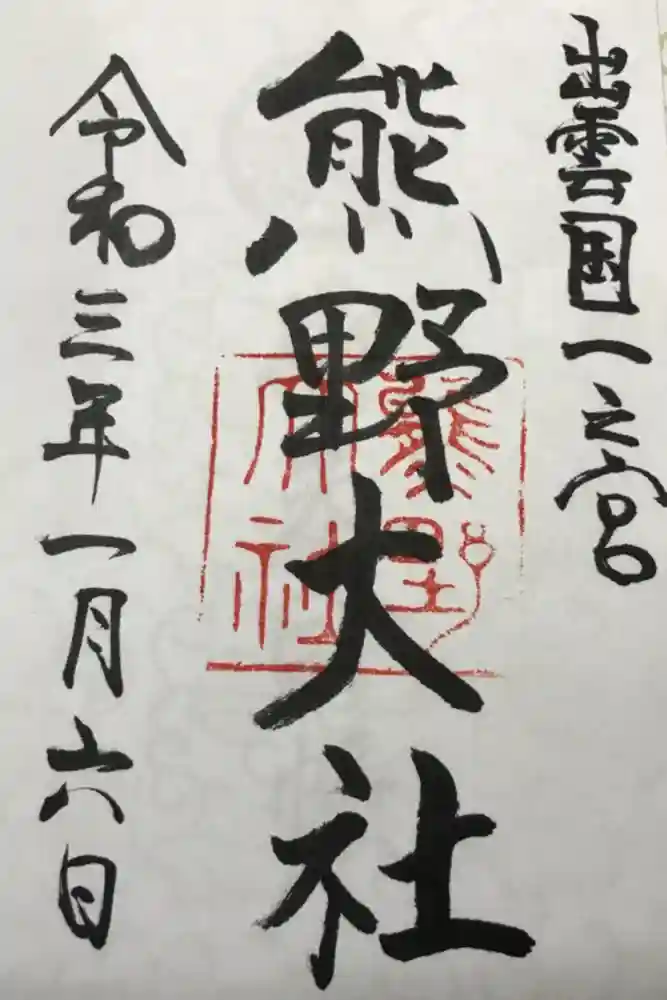 出雲国一之宮
熊野大社
熊野
大社
令和三年一月六日